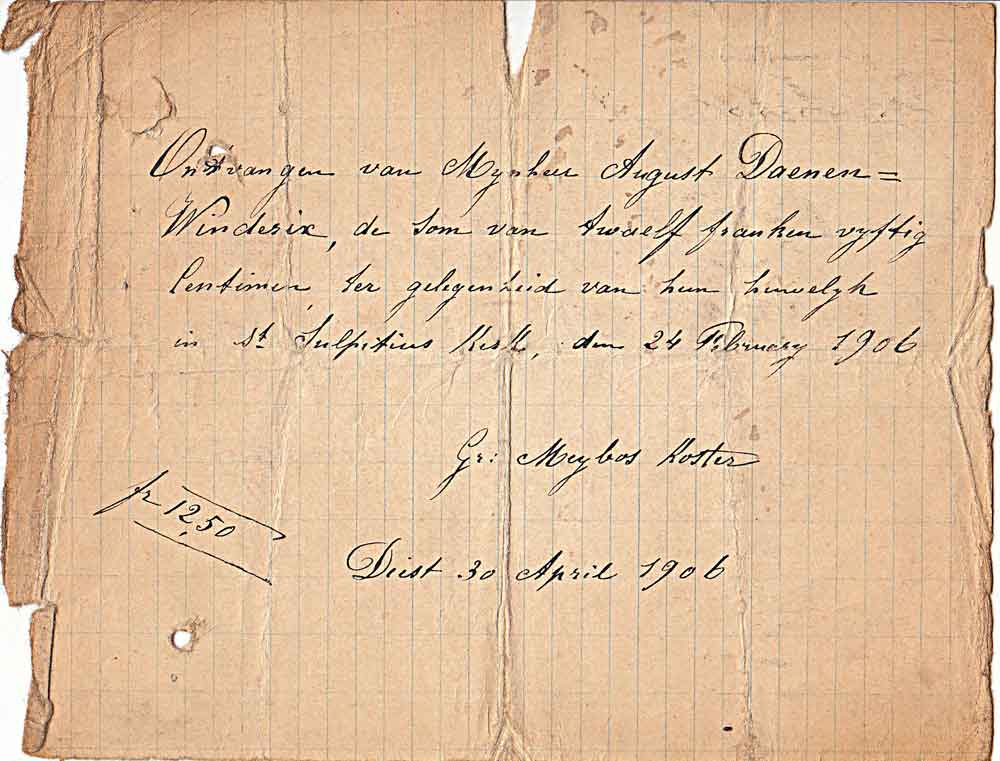 Ontvangen van Mynheer August Daenen=
Winderix, de som van twaelf franken vyftig
Centimen, ter gelegenheid van hun huwelyk
in St Sulpitius Kerk, den 24 February 1906
Gr: Meybos Koster
fr 12,50
Diest 30 April 1906